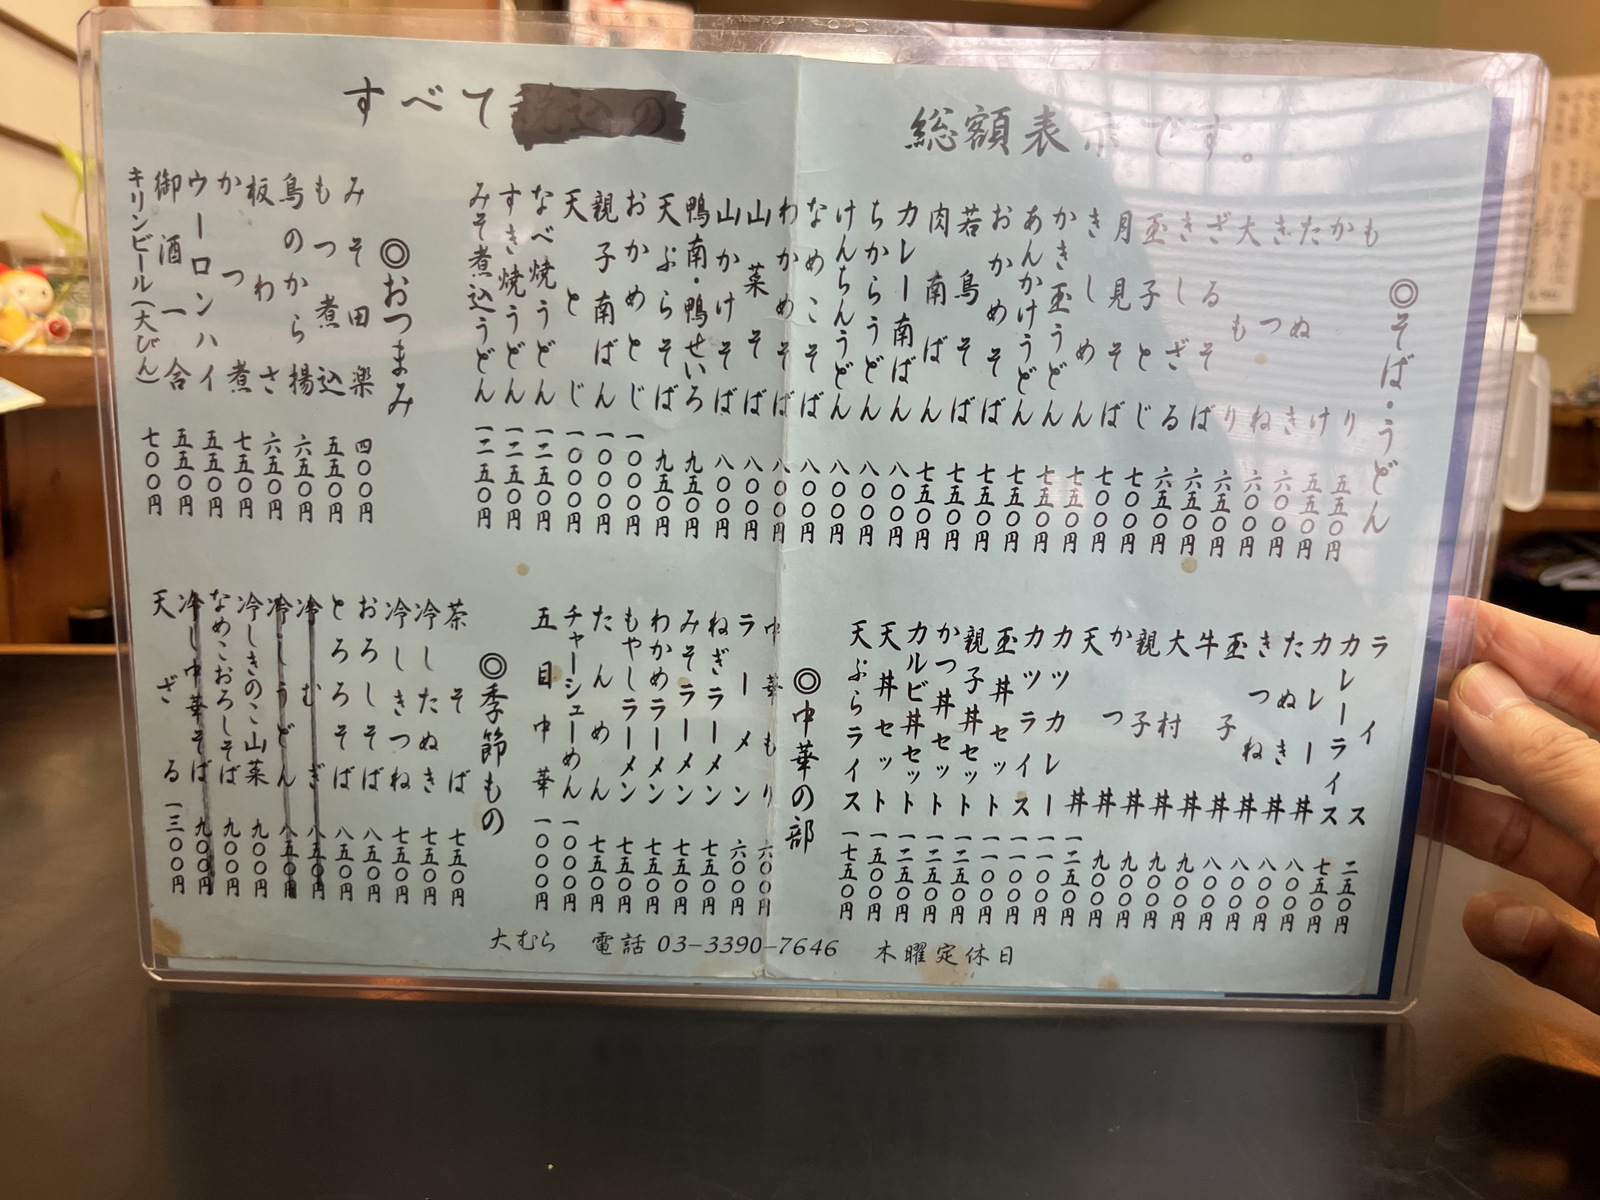 すべて
総額表示です。
◎そば・うどん
もり 五五〇円
かけ 五五〇円
たぬき 六〇〇円
きつね 六〇〇円
大もり 六五〇円
ざるそば 六五〇円
きしざる 六五〇円
玉子とじ 七〇〇円
月見そば 七〇〇円
きしめん 七五〇円
かき玉うどん 七五〇円
あんかけうどん 七五〇円
おかめそば 七五〇円
若鳥そば 七五〇円
肉南ばん 七五〇円
カレー南ばん 八〇〇円
ちからうどん 八〇〇円
けんちんうどん 八〇〇円
なめこそば 八〇〇円
わかめそば 八〇〇円
山菜そば 八〇〇円
山かけそば 八〇〇円
鴨南・鴨せいろ 九五〇円
天ぷらそば 九五〇円
おかめとじ 一〇〇〇円
親子南ばん 一〇〇〇円
天とじ 一〇〇〇円
なべ焼うどん 一二五〇円
すき焼うどん 一二五〇円
みそ煮込うどん 一二五〇円
◎おつまみ
みそ田楽 四〇〇円
もつ煮込 五五〇円
鳥のから揚 六五〇円
板わさ 六五〇円
かつ煮 七五〇円
ウーロンハイ 五五〇円
御酒一合 五五〇円
キリンビール(大びん) 七〇〇円
ライス 二五〇円
カレーライス 七五〇円
カレー丼 八〇〇円
たぬき丼 八〇〇円
きつね丼 八〇〇円
玉子丼 八〇〇円
牛丼 九〇〇円
大村丼 九〇〇円
親子丼 九〇〇円
かつ丼 九〇〇円
天丼 一二五〇円
カツカレー 一一〇〇円
カツライス 一一〇〇円
玉丼セット 一一〇〇円
親子丼セット 一二五〇円
かつ丼セット 一二五〇円
カルビ丼セット 一二五〇円
天丼セット 一五〇〇円
天ぷらライス 一七五〇円
◎中華の部
中華もり 六〇〇円
ラーメン 六〇〇円
ねぎラーメン 七五〇円
みそラーメン 七五〇円
わかめラーメン 七五〇円
もやしラーメン 七五〇円
たんめん 七五〇円
チャーシューめん 一〇〇〇円
五目中華 一〇〇〇円
◎季節もの
茶そば 七五〇円
冷したぬき 七五〇円
冷しきつね 七五〇円
おろしそば 八五〇円
とろろそば 八五〇円
冷むぎ 八五〇円
冷しうどん 八五〇円
冷しきのこ山菜 九〇〇円
なめこおろしそば 九〇〇円
冷し中華そば 九〇〇円
天ざる 一三〇〇円
大むら 電話 03-3390-7646 木曜定休日